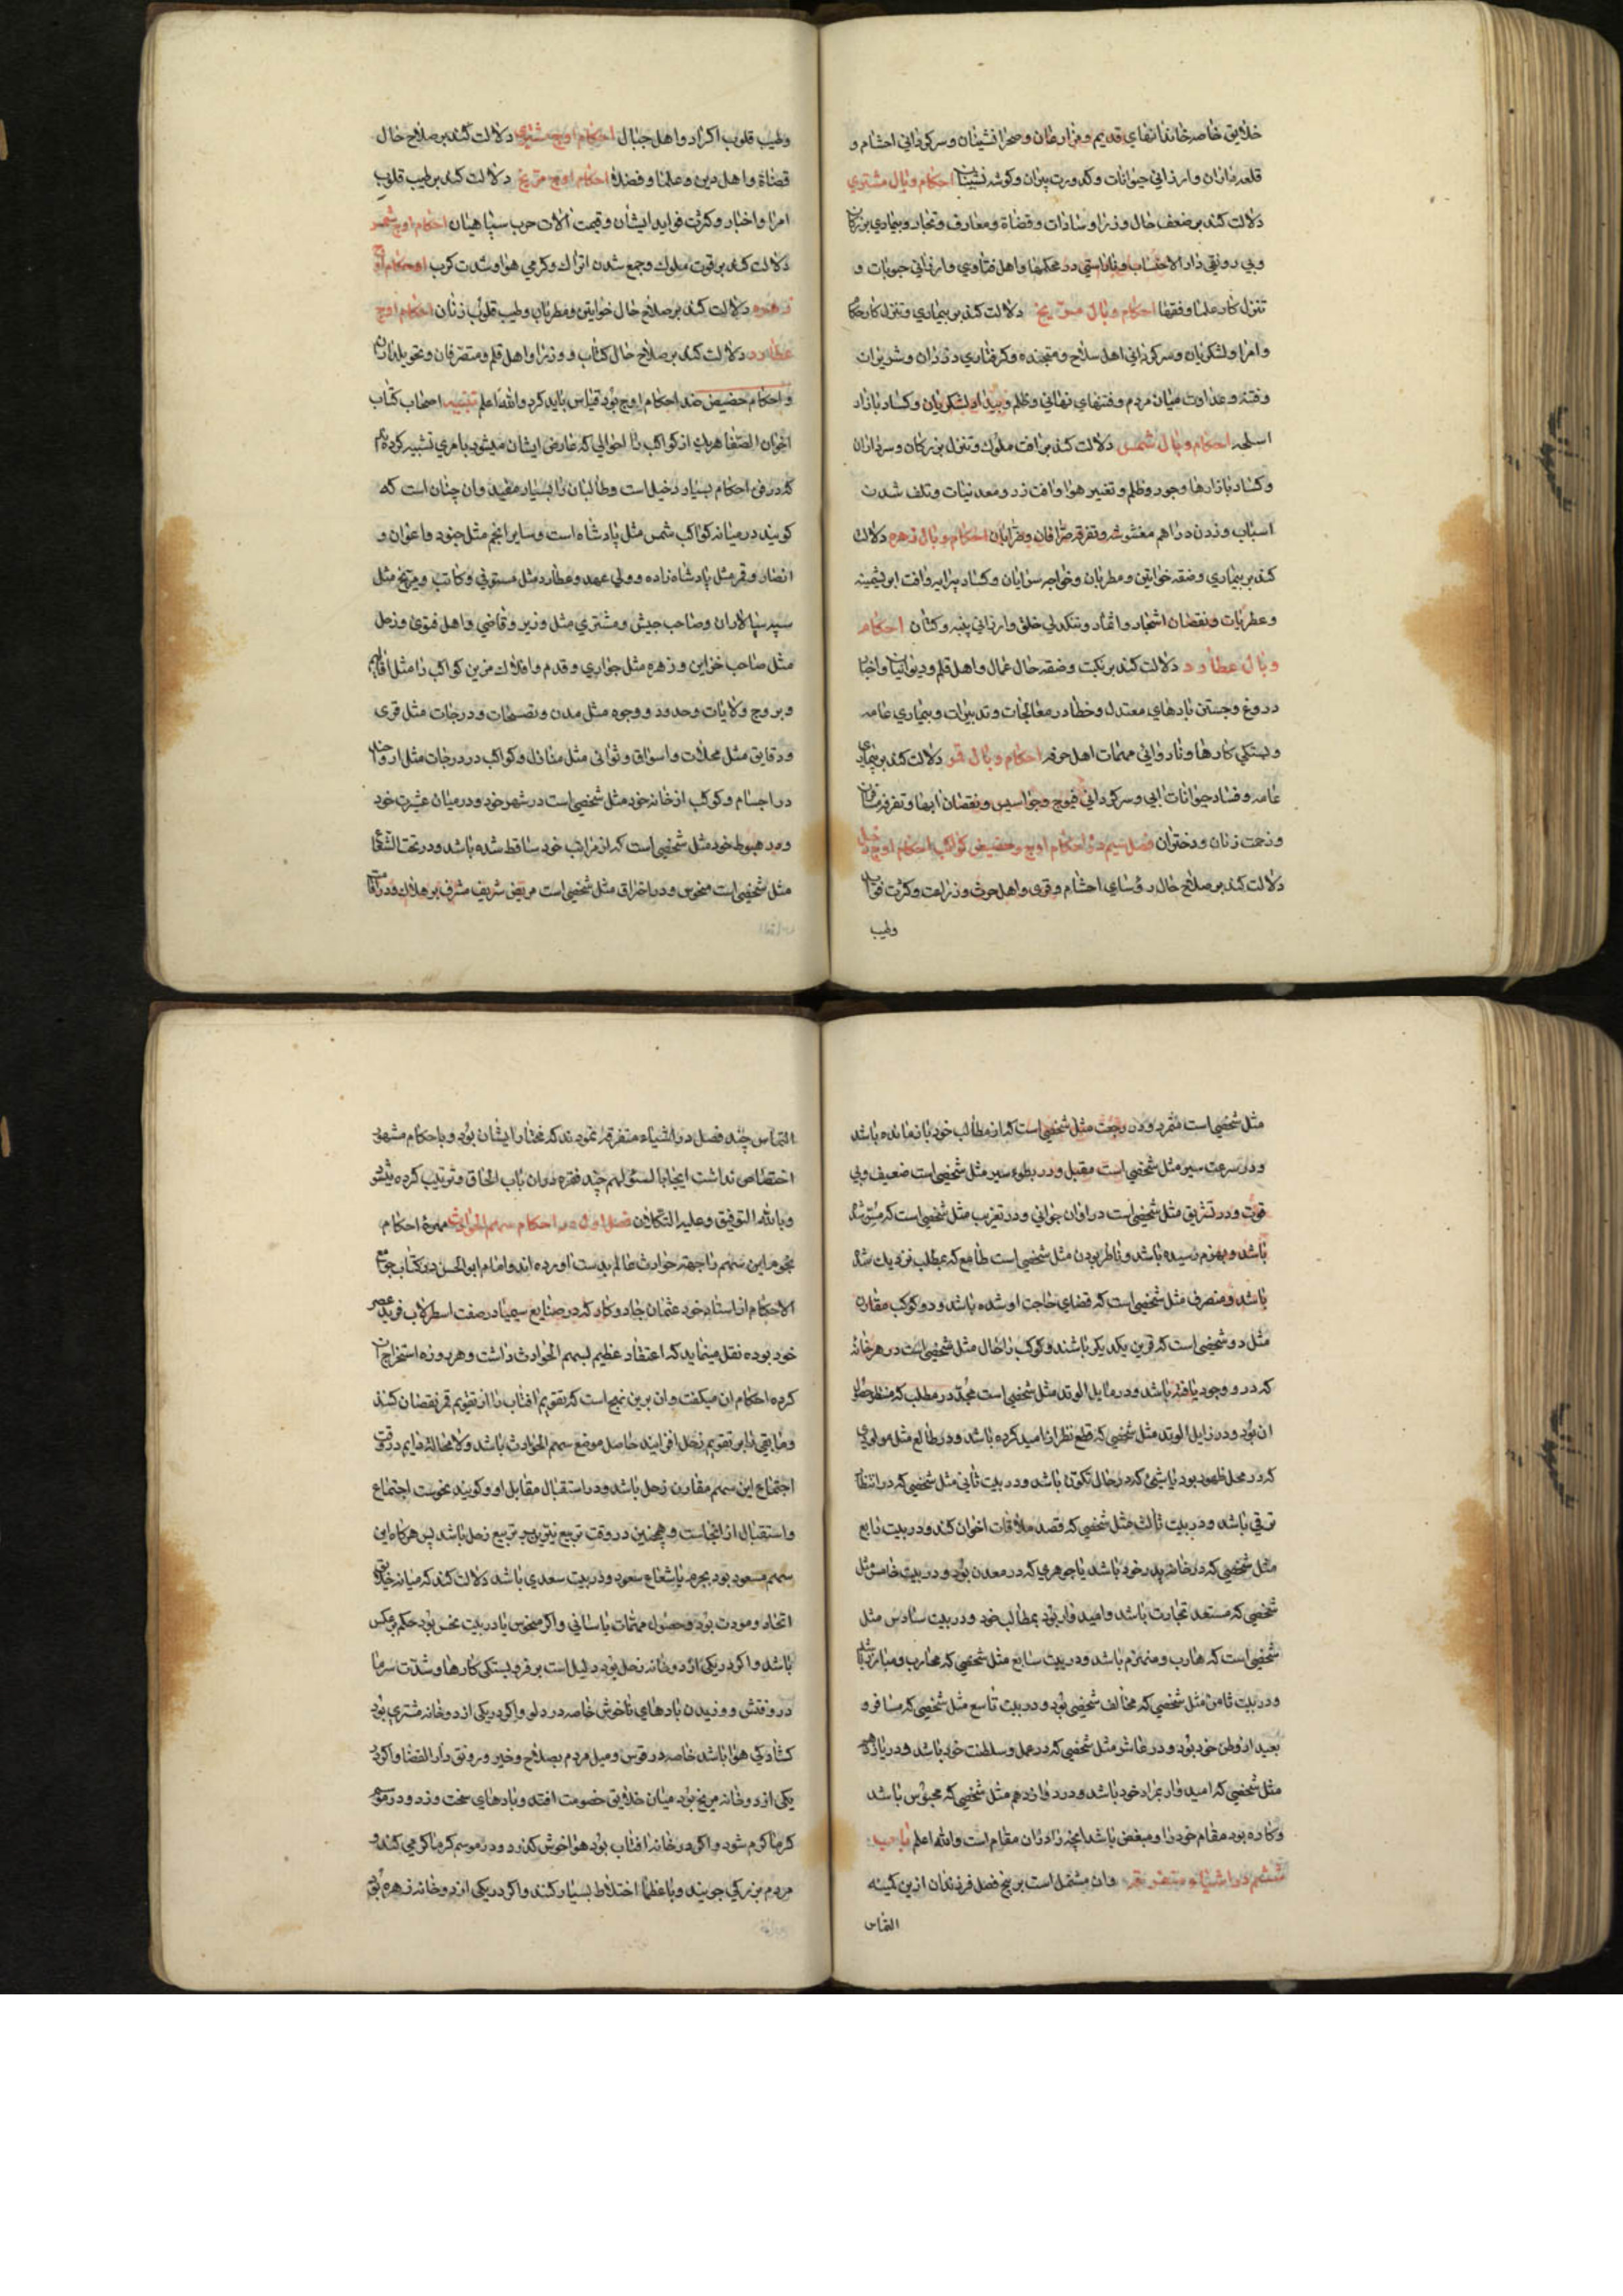 خلایق خاصه خاندانهای قدیم و مزارعان و صحرانشینان و سرکردانی احشام و
قلعه داران و ارزانی حیوانات و کدورت پیران و کوشه نشینان احکام وبال مشتری
دلالت کند بر ضعف حال وزرا و سادات و قضاة و معارف و تجار و بیماری بزرکان
و بی رونقی دار الاحتساب و ناراستی در محکمها و اهل فتاوی و ارزانی حبوبات و
تنزل کار علما و فقها احکام وبال مریخ دلالت کند بر بیماری و تنزل کار حکام
و امرا و لشکریان و سرکردانی اهل سلاح و متجنده و کرفتاری دزدان و شریران
و فتنه و عداوت میان مردم و فتنهای نهانی و ظلم و بیداد لشکریان و کساد بازار
اسلحه احکام وبال شمس دلالت کند بر افت ملوک و تنزل بزرکان و سرداران
و کساد بازارها و جور و ظلم و تغییر هوا و افت زر و معدنیات و تلف شدن
اسباب و زدن دراهم مغشوشه و تفرقه صرافان و ضرابان احکام وبال زهره دلالت
کند بر بیماری و ضقه خواتین و مطربان و خواجه سرایان و کساد پیرایه و افت ابریشمینه
و عطریات و نقصان اشجار و اثمار و تنکدلی خلق و ارزانی پنبه و کتان احکام
وبال عطارد دلالت کند بر نکبت و ضقه حال عمال و اهل قلم و دیوانیان و اخبار
دروغ و جستن بادهای معتدل و خطا در معالجات و تدبیرات و بیماری عامه
و بستکی کارها و ناروائی مهمات اهل حرفه احکام وبال قمر دلالت کند بر بیماری
عامه و فساد حیوانات ابی و سرکردانی فیوج و جواسیس و نقصان ابها و تفرقه مسافران
و زحمت زنان و دختران فصل سیم در احکام اوج و حضیض کواکب احکام اوج زحل
دلالت کند بر صلاح حال رؤسای احشام و قری و اهل حرث و زراعت و کثرت فواید
وطیب
وطیب قلوب اکراد و اهل جبال احکام اوج مشتری دلالت کند بر صلاح حال
قضاة و اهل دین و علما و فضلا احکام اوج مریخ دلالت کند بر طیب قلوب
امرا و اخبار و کثرت فواید ایشان و قیمت الات حرب سپاهیان احکام اوج شمس
دلالت کند بر قوت ملوک و جمع شدن اتراک و کرمی هوا و شدت کرب احکام اوج
زهره دلالت کند بر صلاح حال خواتین و مطربان و طیب قلوب زنان احکام اوج
عطارد دلالت کند بر صلاح حال کتاب و وزرا و اهل قلم و متصرفان و تحویلداران
و احکام حضیض ضد احکام اوج بود قیاس باید کرد و الله اعلم تنبیه اصحاب کتاب
اخوان الصفا هریک از کواکب را احوالی که عارض ایشان میشود بامری تشبیه کرده اند
که در فن احکام بسیار دخیل است و طالبان را بسیار مفید وان چنان است که
کویند در میانه کواکب شمس مثل پادشاه است و سایر انجم مثل جنود و اعوان و
انصار و قمر مثل پادشاه زاده و ولی عهد و عطارد مثل مستوفی و کاتب و مریخ مثل
سپه سالاران و صاحب جیش و مشتری مثل وزیر و قاضی و اهل فتوی و زحل
مثل صاحب خزاین و زهره مثل جواری و قدم و افلاک مر این کواکب را مثل اقالیم
و بروج ولایات و حدود و وجوه مثل مدن و قصبات و درجات مثل قری
و دقایق مثل محلات و اسواق و ثوانی مثل منازل و کواکب در درجات مثل ارواح
در اجسام و کوکب از خانه خود مثل شخصی است در شهر خود و در میان عشیرت خود
و در هبوط خود مثل شخصی است که از مراتب خود ساقط شده باشد و در تحت الشعاع
مثل شخصی است منحوس و در احتراق مثل شخصی است مریض شریف مشرف بر هلاک و در اقامت
مثل شخصی است متمرد و در رجعت مثل شخصی است که از مطالب خود بازمانده باشد
و در سرعت سیر مثل شخصی است مقبل و در بطوء سیر مثل شخصی است ضعیف و بی
قوت و در تشریق مثل شخصی است در اوان جوانی و در تغریب مثل شخصی است که مسن شده
باشد و بهرم رسیده باشد و ناظر بودن مثل شخصی است طامع که بمطلب نزدیک شده
باشد و منصرف مثل شخصی است که قضای حاجت او شده باشد و دو کوکب مقارن
مثل دو شخصی است که قرین یکدیکر باشند و کوکب را حال مثل شخصی است در هر خانه
که در و وجود یافته باشد و در مایل الوتد مثل شخصی است مجد در مطلب که منتظر حصول
ان بود و در زایل الوتد مثل شخصی که قطع نظر از امید کرده باشد و در طالع مثل مولودی
که در محل ظهور بود یا شیئی که در حال تکون باشد و در بیت ثانی مثل شخصی که در انتظار
ترقی باشد و در بیت ثالث مثل شخصی که قصد ملاقات اخوان کند و در بیت رابع
مثل شخصی که در خانه پدر خود باشد یا جوهری که در معدن بود و در بیت خامس مثل
شخصی که مستعد تجارت باشد و امیدوار بود بمطالب خود و در بیت سادس مثل
شخصی است که هارب و منهزم باشد و در بیت سابع مثل شخصی که محارب و مبارز باشد
و در بیت ثامن مثل شخصی که مخالف شخصی بود و در بیت تاسع مثل شخصی که مسافر و
بعید از وطن خود بود و در عاشر مثل شخصی که در عمل و سلطنت خود باشد و در یازدهم
مثل شخصی که امیدوار بمراد خود باشد و در دوازدهم مثل شخصی که محبوس باشد
و کاره بود مقام خود را و مبغض باشد انچه زاد ران مقام است و الله اعلم باب
ششم در اشیاء متفرقه وان مشتمل است بر پنج فصل فرزندان ازین کمینه
التماس
التماس چند فصل در اشیاء متفرقه نمودند که مختار ایشان بود و باحکام مشهور
اختصاص نداشت ایجابا لسئولهم چند فقره دران باب الحاق و ترتیب کرده میشود
و بالله التوفیق و علیه التکلان فصل اول در احکام سهم الحوادث مهرهٔ احکام
نجوم این سهم را جهة حوادث عالم بدست اورده اند و امام ابو الحسن در کتاب جوامع
الاحکام از استاد خود عثمان جادوکار که در صنایع سیمیا در صفت اسطرلاب فرید عصر
خود بوده نقل مینماید که اعتقاد عظیم بسهم الحوادث داشت و هر روزه استخراج ان
کرده احکام ان میکفت وان برین نهج است که تقویم افتاب را از تقویم قمر نقصان کنند
و مابقی را بر تقویم زحل افزایند حاصل موضع سهم الحوادث باشد و لا محاله دایم در وقت
اجتماع این سهم مقارن زحل باشد و در استقبال مقابل او و کویند نحوست اجتماع
و استقبال از انجاست و همچنین در وقت تربیع نیرین بتربیع زحل باشد پس هرکاه این
سهم مسعود بود بجرم یا شعاع سعود و در بیت سعدی باشد دلالت کند که میانه خلایق
اتحاد و مودت بود و حصول مهمات باسانی و اکر منحوس یا در بیت نحس بود حکم برعکس
باشد و اکر در یکی از دو خانه زحل بود دلیل است بر فرو بستکی کارها و شدت سرما
در وقتش و وزیدن بادهای ناخوش خاصه در دلو و اکر در یکی از دو خانه مشتری بود
کشادکی هوا باشد خاصه در قوس و میل مردم بصلاح و خیر و رونق دار القضا و اکر در
یکی از دو خانه مریخ بود میان خلایق خصومت افتد و بادهای سخت وزد و در موسم
کرما کرم شود و اکر در خانه افتاب بود هوا خوش کذرد و در موسم کرما کرمی کند و
مردم بزرکی جویند و با عظما اختلاط بسیار کنند و اکر در یکی از دو خانه زهره بود